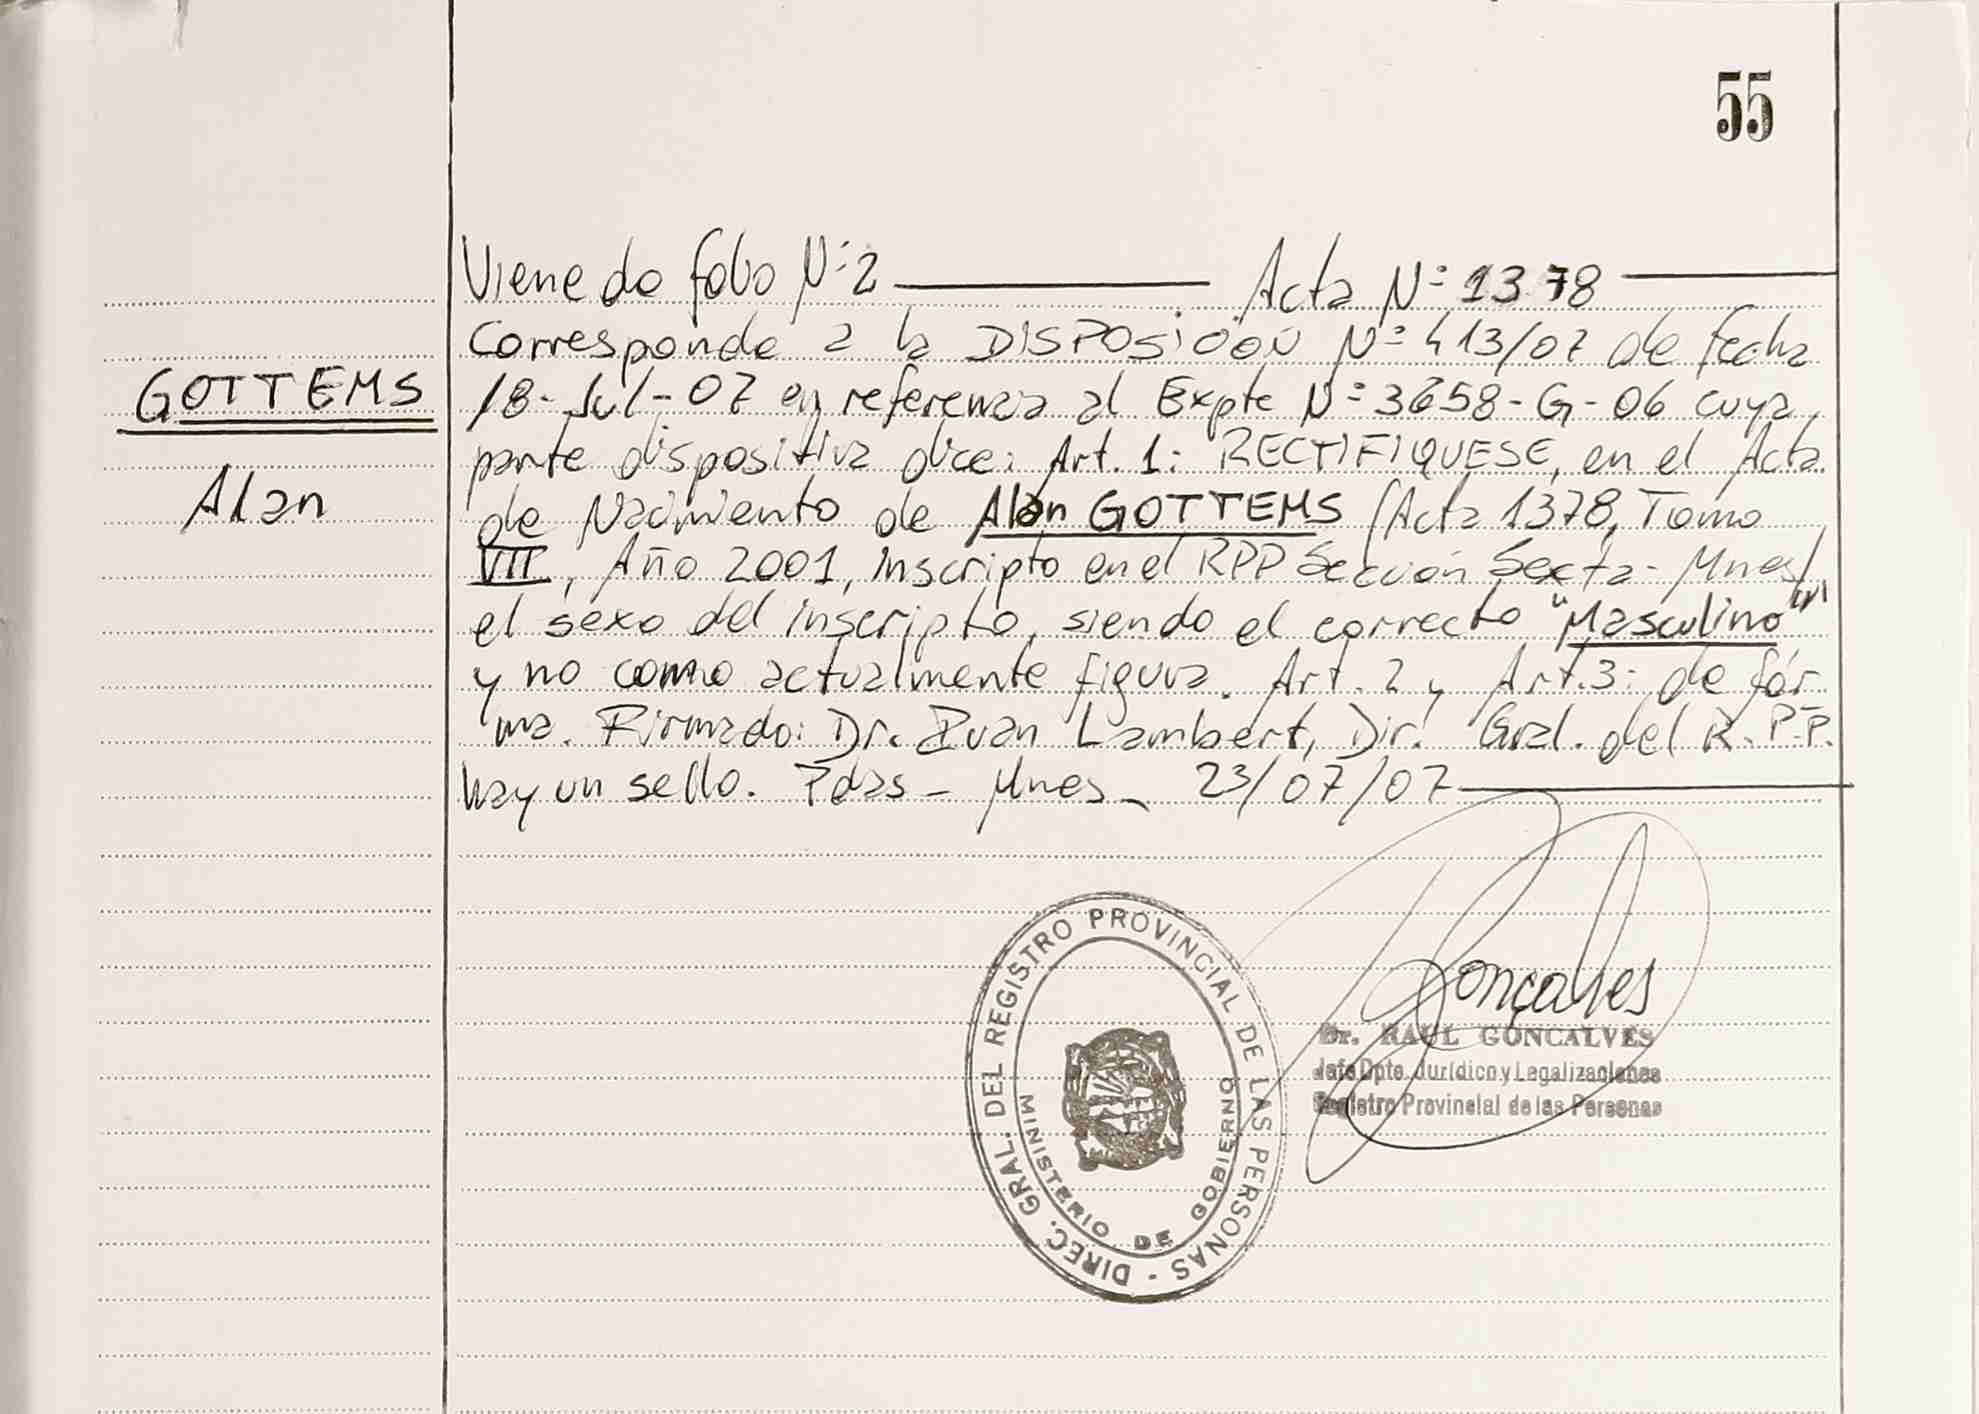 55
Viene de folio Nº 2 ——— Acta Nº 1378 ———
Corresponde a la DISPOSICIÓN Nº 413/07 de fecha
GOTTEMS
18-Jul-07 en referencia al Expte Nº 3658-G-06 cuya
parte dispositiva dice: Art. 1: RECTIFIQUESE, en el Acta
Alan
de Nacimiento de Alan GOTTEMS (Acta 1378, Tomo
VII, Año 2001, inscripto en el RPP Sección Sexta - Mnes)
el sexo del inscripto, siendo el correcto "Masculino"
y no como actualmente figura. Art. 2 y Art. 3: de fór
ma. Firmado: Dr. Iván Lambert, Dir. Gral. del R.P.P.
hay un sello. Pdas - Mnes - 23/07/07 ———
Gonçalves
Dr. RAUL GONCALVES
Jefe Dpto. Jurídico y Legalizaciones
Registro Provincial de las Personas
DIREC. GRAL. DEL REGISTRO PROVINCIAL DE LAS PERSONAS -
MINISTERIO DE GOBIERNO